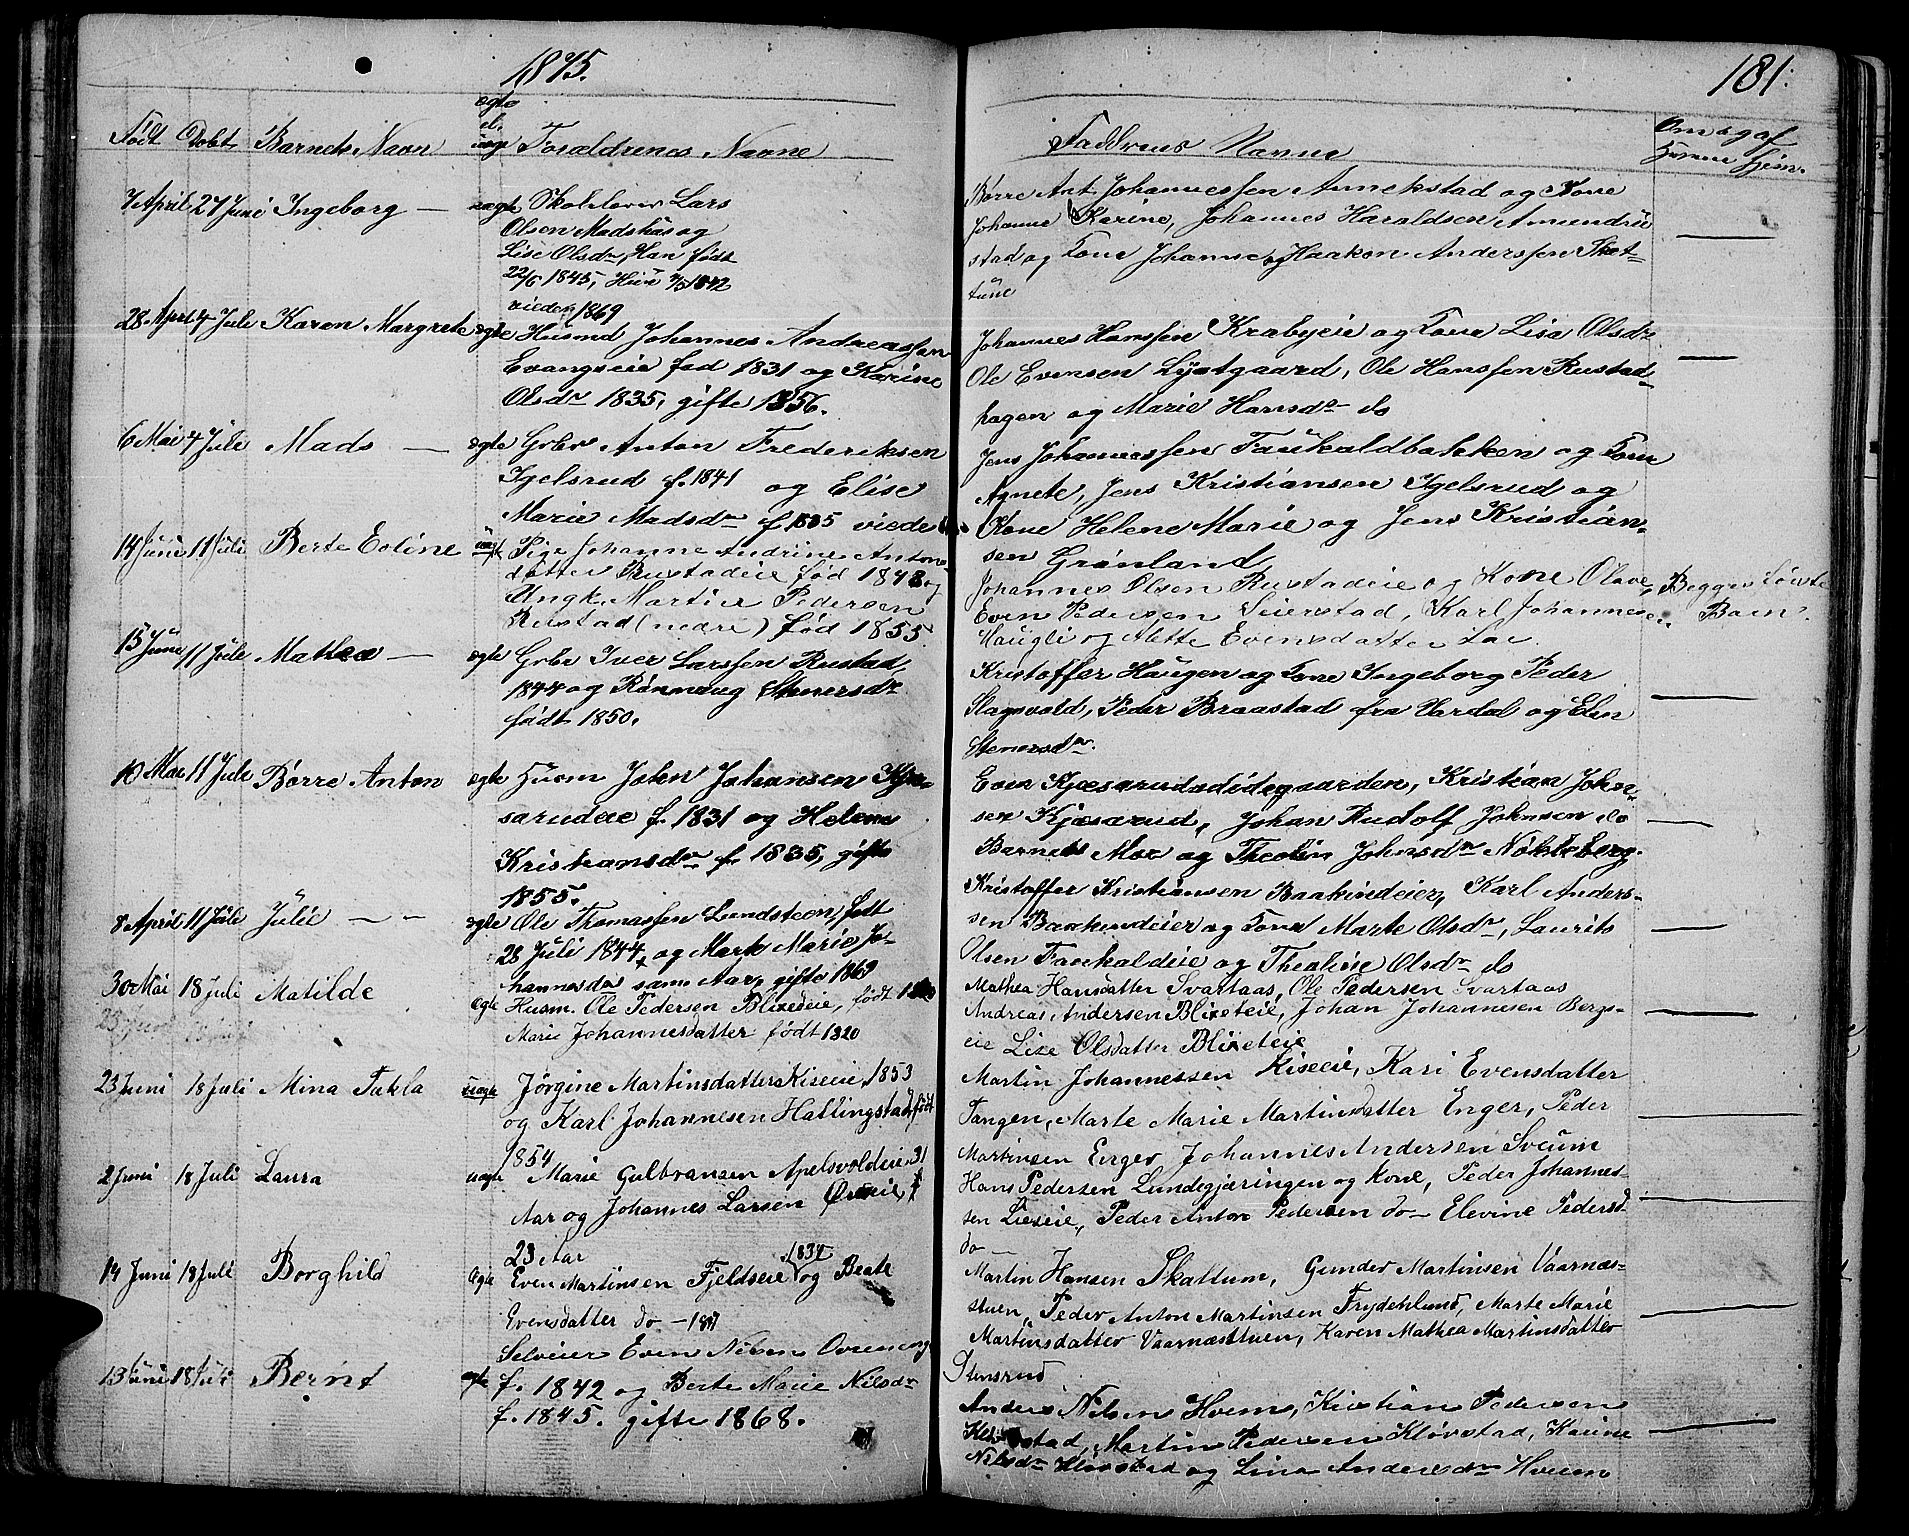 1875.
181.
Født Døbt Barnets Navn ægte el. uægt Forældrenes Navne
Faddrenes Navne
7 April 27 Juni Ingeborg — uægte Skolelærer Lars
Olsen Madshus og
Lise Olsdr, Han født
22/6 1845, Hun 1842
viede 1869
28 April 4 Juli Karen Margrete ægte Husmd Johannes Andreassen
Evangseie fød 1831 og Karine
Olsdr 1835, gifte 1856.
6 Mai 4 Juli Mads — ægte Grbr Anton Frederiksen
Igelsrud f. 1841 og Elise
Marie Madsdr f 1835 viede
14 Juni 11 Juli Berte Eoline uægt Pige Johanne Andrine Antons-
datter Rustadeie fød 1848 og
Ungk. Martin Pedersen
Rustad (nedre) fød 1855
15 Juni 11 Juli Mathea — ægte Grbr Iver Larssen Rustad
1844 og Rønnaug Stenersdr
født 1850.
10 Mai 11 Juli Børre Anton ægte Husm John Johansen Kjæ-
sarudeie f. 1831 og Helene
Kristiansdr f. 1835, gifte
1855.
8 April 11 Juli Julie — — ægte Ole Thomassen Lundsteen, født
28 Juli 1844, og Mark Marie Jo-
hannesdr samme Aar, gifte 1869
30 Mai 18 Juli Matilde ægte Husm. Ole Pedersen Blixeteie, født
Marie Johannesdatter født 1820
23 Juni 18 Juli Mina Takla uægte Jørgine Martinsdatter Kiseeie, 1853
og Karl Johannesen Hattingstad, født
1854
2 Juni 18 Juli Laura uægte Marie Gulbransen Apelsvoldeie, 31
Aar og Johannes Larsen
23 Aar
14 Juni 18 Juli Borghild Ægte Even Martinsen Fjeldseie 1834 og Beate
Evensdatter do —
13 Juni 18 Juli Bernt ægte Selveier Even Nilsen
f. 1842 og Berte Marie Nilsdr
f. 1845. gifte 1868.
Børre Ant. Johannessen Annekstad og Kone
Johanne Karine, Johannes Haraldsen Amundrud
stad og Kone Johanne og Haakon Anderssen Skat-
tum
Johannes Hanssen Krabyeie og Kone Lisa Olsdr
Ole Evensen Lystgaard, Ole Hanssen Rustad-
hagen og Marie Hansdr do
Jens Johannessen Faukaldbakken og Kone
Agnete, Jens Kristiansen Igelsrud og
Kone Helene Marie og Jens Kristian-
sen Grønland
Johannes Olsen Rustadeie og Kone Olave, Begges første
Even Pedersen Seierstad, Karl Johannesen Barn.
Haugli og Mette Evensdatter
Kristoffer Haugen og Kone Ingeborg Peder
Slagsvold, Peder Braastad fra Vardal og Elen
Stenersdr.
Even Kjæsarudsdidegaarden, Kristian John-
sen Kjæsarud, Johan Rudolf Johnsen do
Barnets Mor og Theoline Johnsdr Nøkleberg.
Kristoffer Kristiansen Baakindeier, Karl Anders-
sen Baakindeier og Kone Marte Olsdr, Laurits
Olsen Faukaldeie og Thealise Olsdr do
Mathea Hansdatter Svartaas, Ole Pedersen Svartaas
Andreas Andersen Blixeteie, Johan Johannesen Bergs-
eie Lise Olsdatter Blixeteie
Martin Johannessen Kiseeie, Kari Evensdatter
Tangen, Marte Marie Martinsdatter Enger, Peder
Martinsen Enger Johannes Andersen Sveum
Hans Pedersen Lundegjæringen og Kone, Peder Johannes-
sen Lieseie, Peder Anton Pedersen do — Elevine Pedersd
do —
Martin Hansen Skattum, Gunder Martinsen Vaarnæs-
stuen, Peder Anton Martinsen Frydenlund, Marte Marie
Martinsdatter Vaarnæstuen, Karen Mathea Martinsdatter
Stensrud
Anders Nilsen Hveem, Kristian Pedersen
Kløvstad, Martin Pedersen Kløvstad, Karine
Nilsdr Kløvstad og Lina Andersdr Hveem